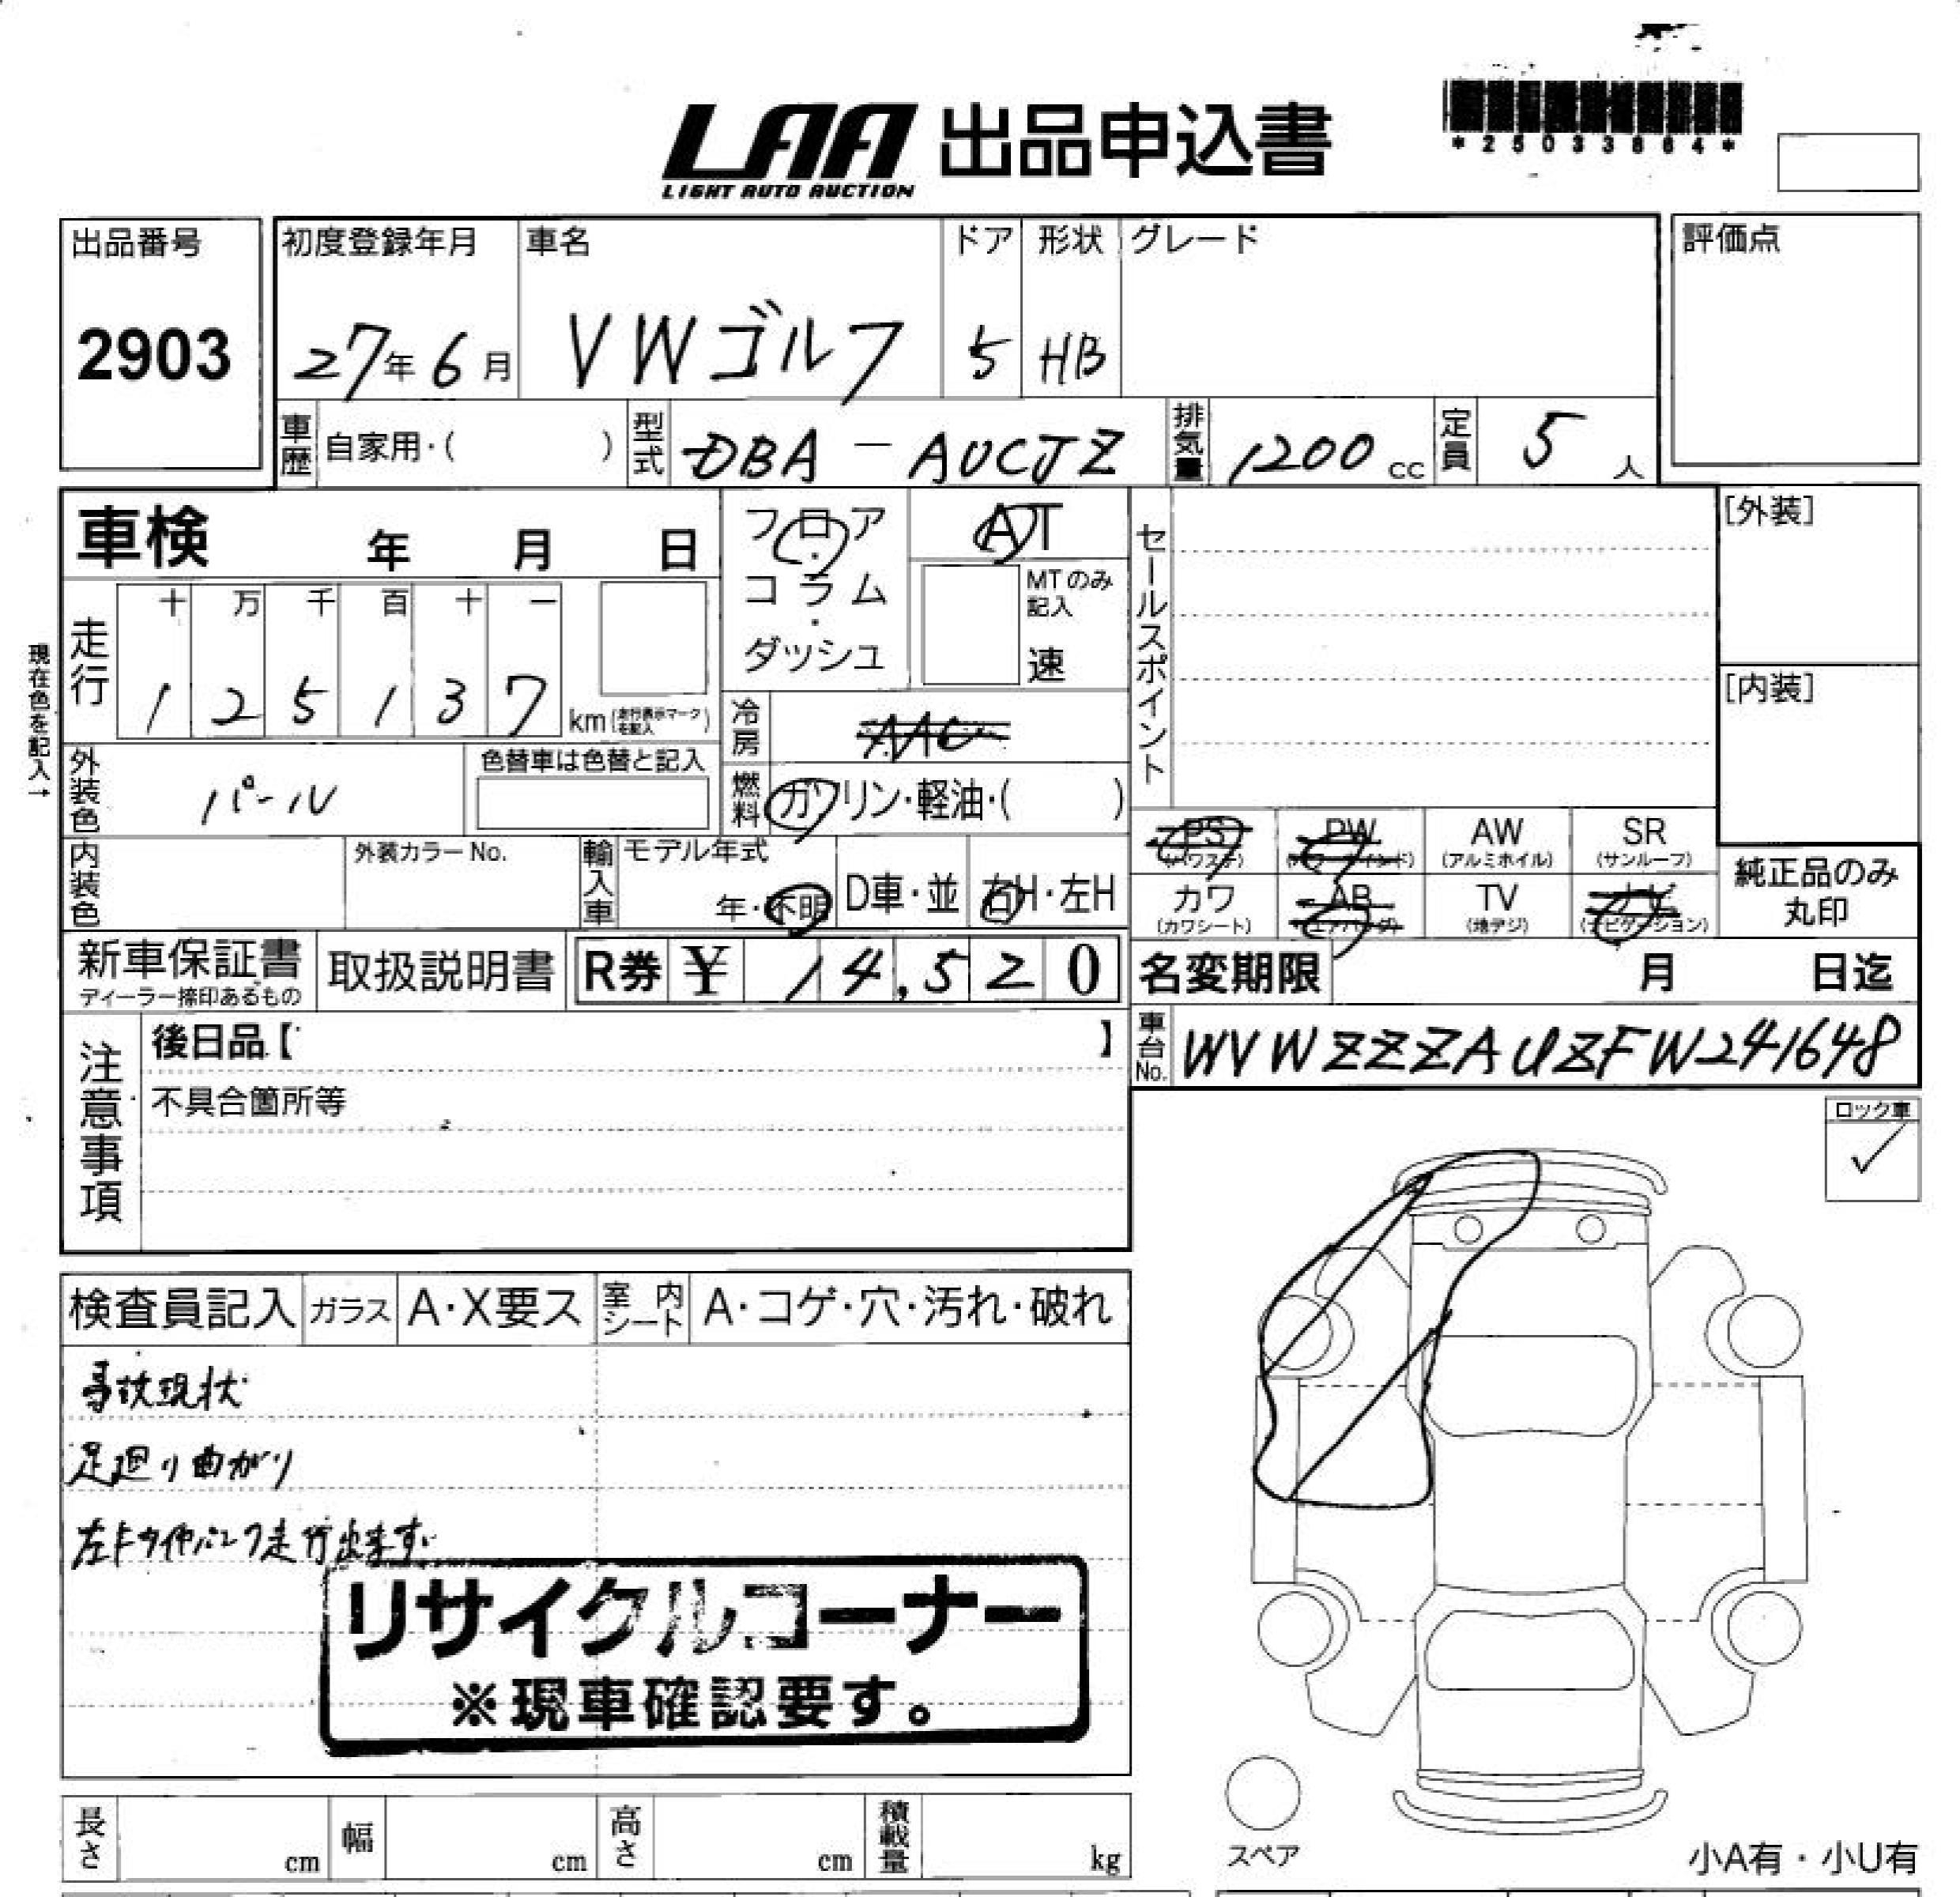 LAA 出品申込書
LIGHT AUTO AUCTION
*25033864*
出品番号
2903
初度登録年月 車名 ドア 形状 グレード
27年6月 VWゴルフ 5 HB
評価点
車歴 自家用・( ) 型式 DBA-AUCJZ 排気量 1200cc 定員 5人
車検 年 月 日
フロア・コラム・ダッシュ
AT
MTのみ記入
速
セールスポイント
[外装]
[内装]
現在色を記入→
走行 十 万 千 百 十 一
1 2 5 1 3 7 km (走行表示マークを記入)
冷房 AAC
外装色 パール 色替車は色替と記入
燃料 ガソリン・軽油・( )
PS (パワステ) PW AW (アルミホイル) SR (サンルーフ)
カワ (カワシート) AB (エアバッグ) TV (地デジ) ナビ (ナビゲーション)
純正品のみ
丸印
内装色 外装カラーNo. 輸入車 モデル年式
年・不明 D車・並 右H・左H
新車保証書 取扱説明書 R券 ¥ 14,520
ディーラー捺印あるもの
名変期限 月 日迄
車台No. WVWZZZAUZFW241648
注意事項
後日品【 】
不具合箇所等
ロック車
✓
検査員記入 ガラス A・X要ス 室内シート A・コゲ・穴・汚れ・破れ
事故現状
足廻り曲がり
左Fタイヤパンク走行出来ず
リサイクルコーナー
※現車確認要す。
スペア
小A有・小U有
長さ cm 幅 cm 高さ cm 積載量 kg